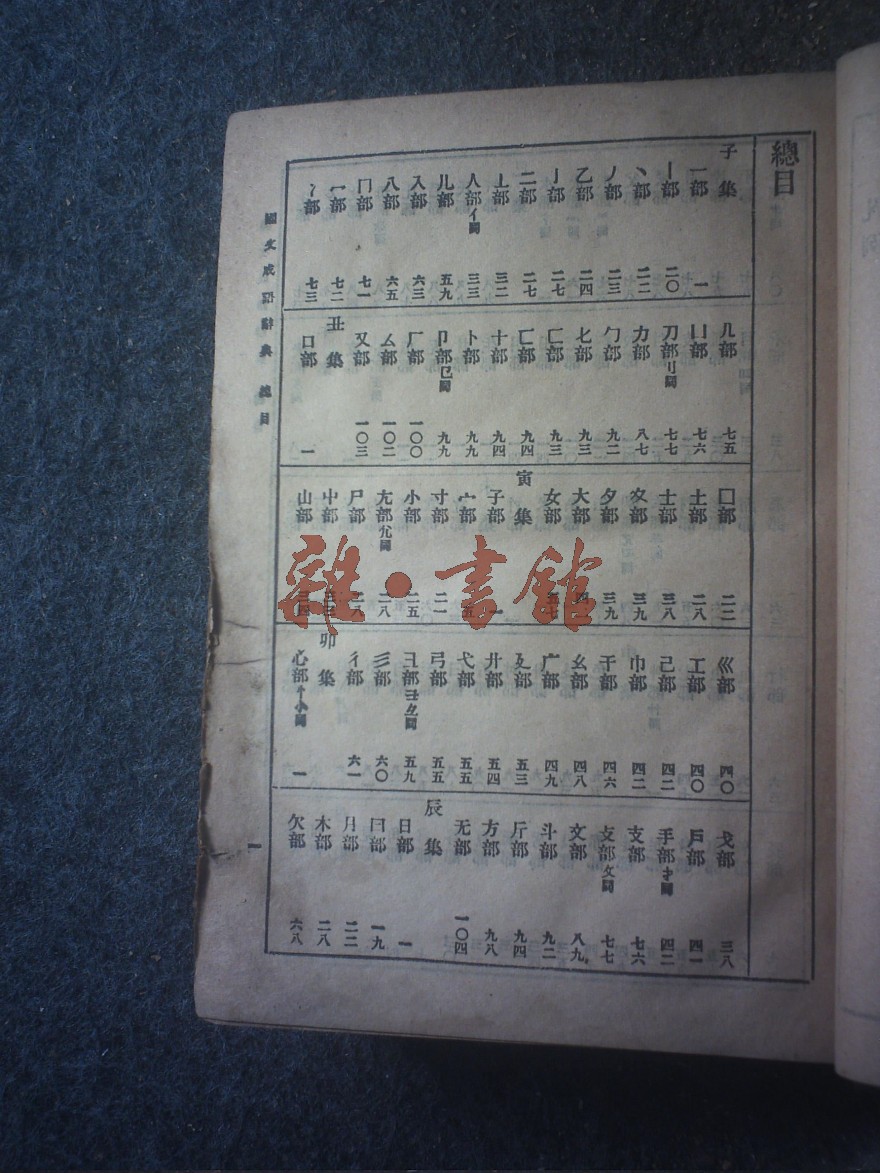 總目
子集
一部 一
丨部 二〇
丶部 二二
丿部 二三
乙部 二四
亅部 二七
二部 二七
亠部 三二
人部亻同 三三
儿部 五九
入部 六三
八部 六五
冂部 七一
冖部 七二
冫部 七三
几部 七五
凵部 七六
刀部刂同 七七
力部 八七
勹部 九二
匕部 九三
匚部 九三
匸部 九四
十部 九四
卜部 九九
卩部㔾同 九九
厂部 一〇〇
厶部 一〇二
又部 一〇三
丑集
口部 一
囗部 二二
土部 二八
士部 三八
夊部 三九
夕部 三九
大部
女部
寅集
子部 一
宀部
寸部 二一
小部 二五
尢部尣同 二八
尸部 二八
屮部
山部
巛部 四〇
工部 四〇
己部 四二
巾部 四二
干部 四六
幺部 四八
广部 四九
廴部 五三
廾部 五四
弋部 五五
弓部 五五
彐部彑同 五九
彡部 六〇
彳部 六一
卯集
心部忄㣺同 一
戈部 三八
戶部 四一
手部扌同 四二
支部 七六
攴部攵同 七七
文部 八九
斗部 九二
斤部 九四
方部 九八
无部 一〇四
辰集
日部 一
曰部 一九
月部 二二
木部 二八
欠部 六八
國文成語辭典 總目
一
雜·書館